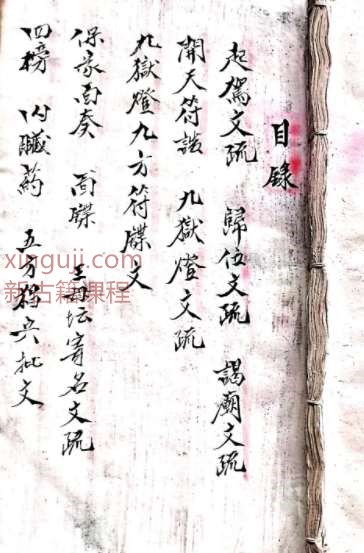 目錄
起駕文疏 歸位文疏 謁廟文疏
開天符誥 九獄燈文疏
九獄燈九方符牒文
保家奏 牒 坛寄名文疏
四榜 內臟葯 五方猖兵批文
xinguji.com
新古籍课程